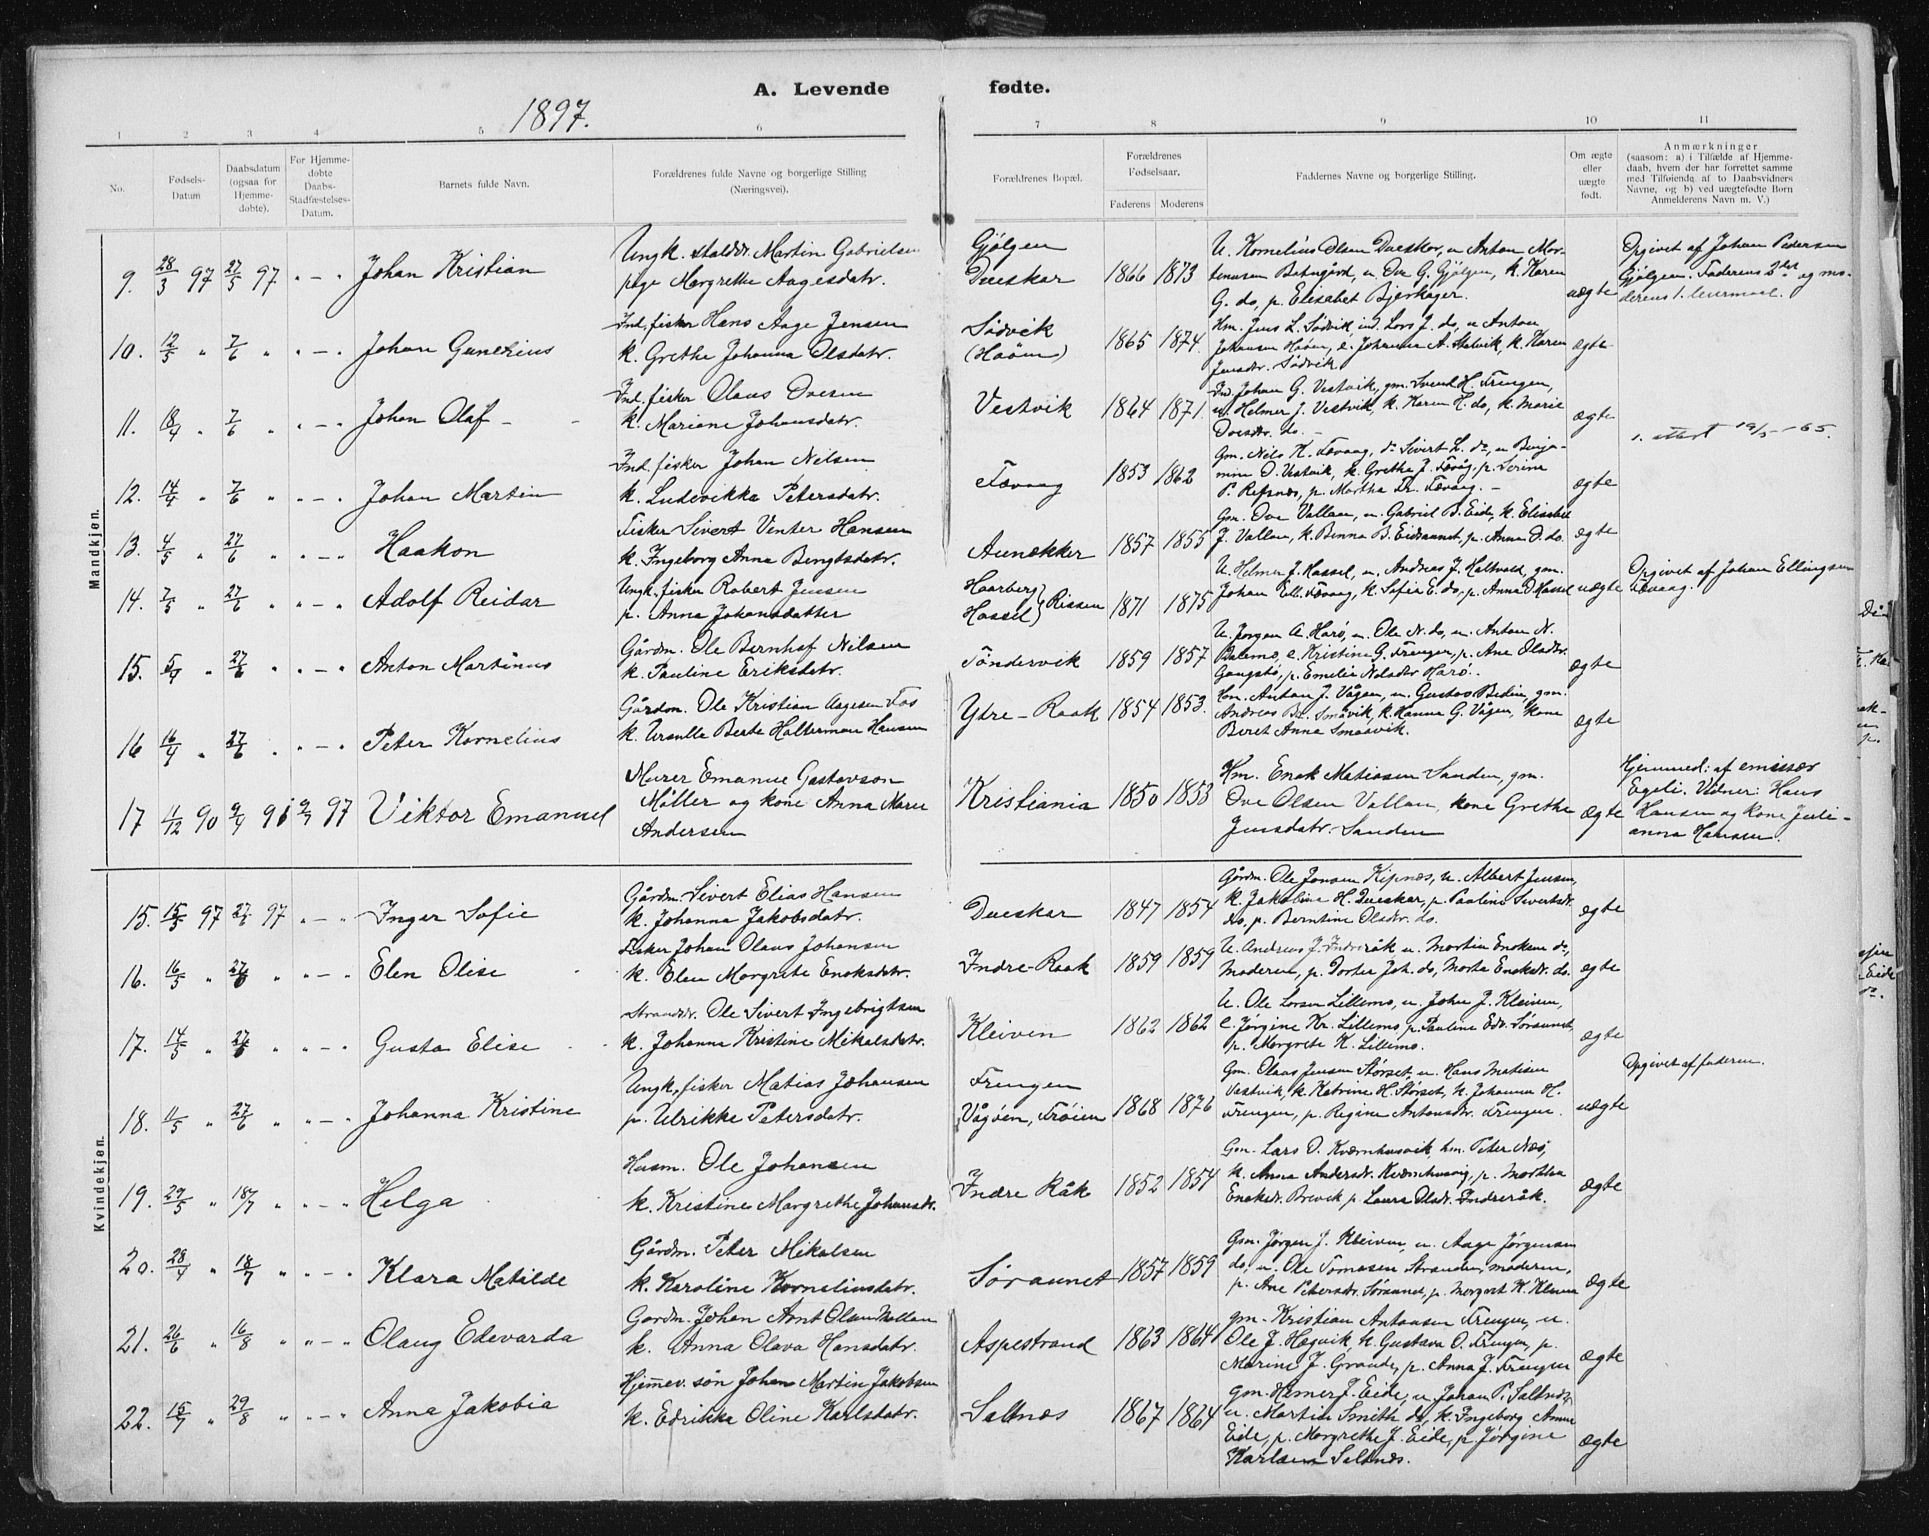 A. Levende fødte.
1897.
1 2 3 4 5 6 7 8 9 10 11
No.
Fødsels-Datum
Daabsdatum (ogsaa for Hjemme-døbte).
For Hjemme-døbte Daabs-Stadfæstelses-Datum.
Barnets fulde Navn.
Forældrenes fulde Navne og borgerlige Stilling (Næringsvei).
Forældrenes Bopæl.
Forældrenes Fødselsaar.
Faderens Moderens
Faddernes Navne og borgerlige Stilling.
Om ægte eller uægte født.
Anmærkninger
(saasom: a) i Tilfælde af Hjemme-
daab, hvem der har forrettet samme
med Tilføiende af to Daabsvidners
Navne, og b) ved uægtefødte Born
Anmelderens Navn m. V.)
Mandkjøn.
9. 28/3 97 27/5 97 " — " Johan Kristian
Ungk. Martin Gabrielsen
pige Margrethe Aagesdatr.
Gjølgen
Dueskar
1866 1873
U. Kornelius Olsen Dueskar, u. Anton Mor-
tensen Batngård, u. Ove G. Gjølgen, k. Karen
G. do, p. Elisabet Bjørkager.
uægte
Opgivet af Johan Pedersen
Gjølgen. Faderens 2det og mo-
derens 1. leiermaal.
10. 12/5 " 7/6 " " — " Johan Gunerius
Ind., fisker Hans Aage Jensen
k. Grethe Johanna Olsdatr.
Sødvik
(Haøen)
1865 1874.
Hm. Jens L. Sødvik, ind. Lars J. do, u. Anton
Johansen Haøen, e. Johanna A. Stalvik, k. Karen
Jensdtr. Sødvik
ægte
11. 18/4 " 7/6 " " — " Johan Olaf —
Ind., fisker Olaus Ovesen
k. Mariane Johansdatr.
Vestvik
1864 1871.
Ind. Johan G. Vestvik, gm. Svend H. Frengen,
u. Helmer J. Vestvik, k. Karen H. do, k. Marie
Ovesdtr. do. —
ægte
1. attest 19/5 - 65.
12. 14/4 " 7/6 " " — " Johan Martin
Ind. fisker Johan Nilsen
k. Ludevikka Petersdatr.
Fævaag
1853 1862
Gm. Nils K. Fævaag, do Sivert L. do, u. Benja-
min O. Vestvik, k. Grethe J. Fævåg, p. Serine
P. Refsnæs, p. Martha Fr. Fævaag. —
ægte
13. 4/5 " 27/6 " " — " Haakon
Fisker Sivert Venter Hansen
k. Ingeborg Anna Bengtsdatr.
Aunækker
1857 1855
Gm. Ove Vallan, u. Gabriel B. Eide, k. Elisabet
J. Vallan, k. Benna B. Eidsaunet, p. Anna O. do.
ægte
14. 7/5 " 27/6 " " — " Adolf Reidar
Ungk., fisker Robert Jensen
p. Anna Johansdatter
Haarberg
Hassel } Rissen
1871 1875
U. Helmer J. Hassel, u. Andreas J. Kaltvold, gm.
Johan Ell. Fævaag, k. Sofie E. do, p. Anna O. Hassel
uægte
Opgivet af Johan Ellingsen
Fævaag.
15. 5/4 " 27/6 " " — " Anton Martinus
Gårdm. Ole Bernhof Nilsen
k. Pauline Eriksdatr.
Tøndervik
1859 1857
U. Jørgen A. Harø, u. Ole N. do, u. Anton N.
Balsnes, e. Kristine G. Frengen, p. Ane Olsdtr.
Gangstø, p. Emilie Nilsdtr Harø.
ægte
16 16/4 " 27/6 " — " Peter Kornelius
Gårdm. Ole Kristian Aagesen Fos
k. Ursulle Berte Halterman Hansen
Ytre-Raak
1854 1853.
Hm. Anton J. Vågan, u. Gustav Bedin, gm.
Andreas Småvik, k. Hanna G. Vågen, kone
Beret Anna Smaavik.
ægte
17 11/12 90 9/4 91 9/7 97 Viktor Emanuel
Murer Emanuel Gustavson
Møller og kone Anna Marie
Andersen
Kristiania
1850 1853
Hm. Enok Matiasen Sanden, gm.
Ove Olsen Vallan, kone Grethe
Jensdatr. Sanden
ægte
Hjemmed: af emissær
Egeli. Vidner: Hans
Hansen og kone Juli-
anna Hansen.
Kvindekjøn.
15. 15/5 97 27/6 97 " — " Inger Sofie
Gårdm. Sivert Elias Hansen
k. Johanna Jakobsdatr.
Dueskar
1847 1854
Gårdm. Ole Jonsen Kipnæs, u. Albert Jensen,
k. Jakobine H. Dueskar, p. Pauline Sivertsdtr.
do, p. Berntine Olsdtr. do.
ægte
16. 16/5 " 27/6 " " — " Elen Olise
Fisker Johan Olaus Johansen
k. Elen Margrete Enoksdatr.
Indre-Raak
1859 1859
U. Andreas J. Indreråk, u. Martin Enoksen do,
Moderen, p. Dorter Joh. do, Marta Enoksdtr. do.
ægte
17. 14/5 " 27/6 " " — " Gusta Elise
Strandsr. Ole Sivert Ingebrigtsen
k. Johanna Kristine Mikalsdatr.
Kleiven
1862 1862
U. Ole Larsen Lillemo, u. John J. Kleiven,
e. Jørgine Kr. Lillemo, p. Pauline Edv. Søraunet,
p. Margrete K. Lillemo.
ægte
18. 11/5 " 27/6 " " — " Johanna Kristine
Ungk., fisker Matias Johansen
p. Ulrikke Petersdatr.
Frengen
Vågøen, Frøien
1868 1876
Gm. Olaus Jensen Størset, u. Hans Matisen
Vastvik, k. Katrine H. Størset, k. Johanna H.
Frengen, p. Regine Antonsdtr. Frengen.
uægte
Opgivet af faderen.
19. 29/5 " 18/7 " " — " Helga
Husm. Ole Johansen
k. Kristine Margrethe Johansdtr.
Indre Råk
1852 1854
Gm. Lars O. Kværnhusvik, hm. Peter Næs,
k. Anna Andersdtr. Kværnhusvig, p. Martha
Enoksdt. Brevik p. Laura Olsdt. Indreråk.
ægte
20. 28/4 " 18/7 " " — " Klara Matilde
Gårdm. Peter Mikalsen
k. Karoline Kornelinsdatr.
Søraunet
1857 1859
Gm. Jørgen J. Kleiven, u. Aage Jørgensen
do, u. Ole Tomasen Stranden, moderen,
p. Ane Petersdtr. Søraunet, p. Mergret K. Kleiven
ægte
21. 26/6 " 16/8 " " — " Olaug Edevarda
Gardm. Johan Arnt Olsen Vallan
k. Anna Olava Hansdatr.
Aspestrand
1863 1864
gm. Kristian Antonsen Frengen, u.
Ole J. Hegvik, k. Gustava O. Frengen, p.
Marine J. Grande, p. Anna J. Frengen
ægte
22. 15/7 " 29/8 " " — " Anna Jakobia
Hjemmev. søn Johan Martin Jakobsen
k. Edrikka Oline Karlsdatr.
Saltnæs
1867 1864
gm. Helmer J. Eide, u. Johan P. Saltnæs,
u. Martin Smith do, k. Ingeborg Anna
Eide, p. Margrethe J. Eide, p. Jørgine
Karlsen Saltnæs.
ægte